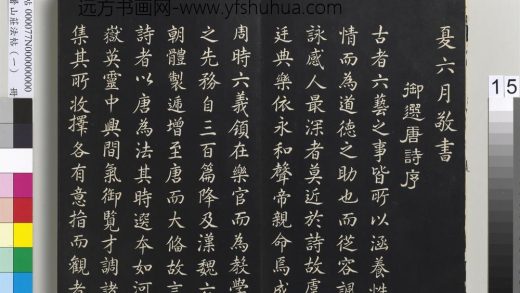 远方书画网-www.yfshuhua.com
夏六月敬書
御選唐詩序
古者六藝之事皆所以涵養性
情而為道德之助也而從容諷
詠感人最深者莫近於詩故虞
廷典樂依永和聲帝親命焉成
周時六義領在樂官而為教學
之先務自三百篇降及漢魏六
朝體製遞增至唐而大備故言
詩者以唐為法其時選本如河
嶽英靈中興間氣御覽才調諸
集其所收擇各有意指而觀者
山莊法帖(一) 冊
帖 000077N000000000
15